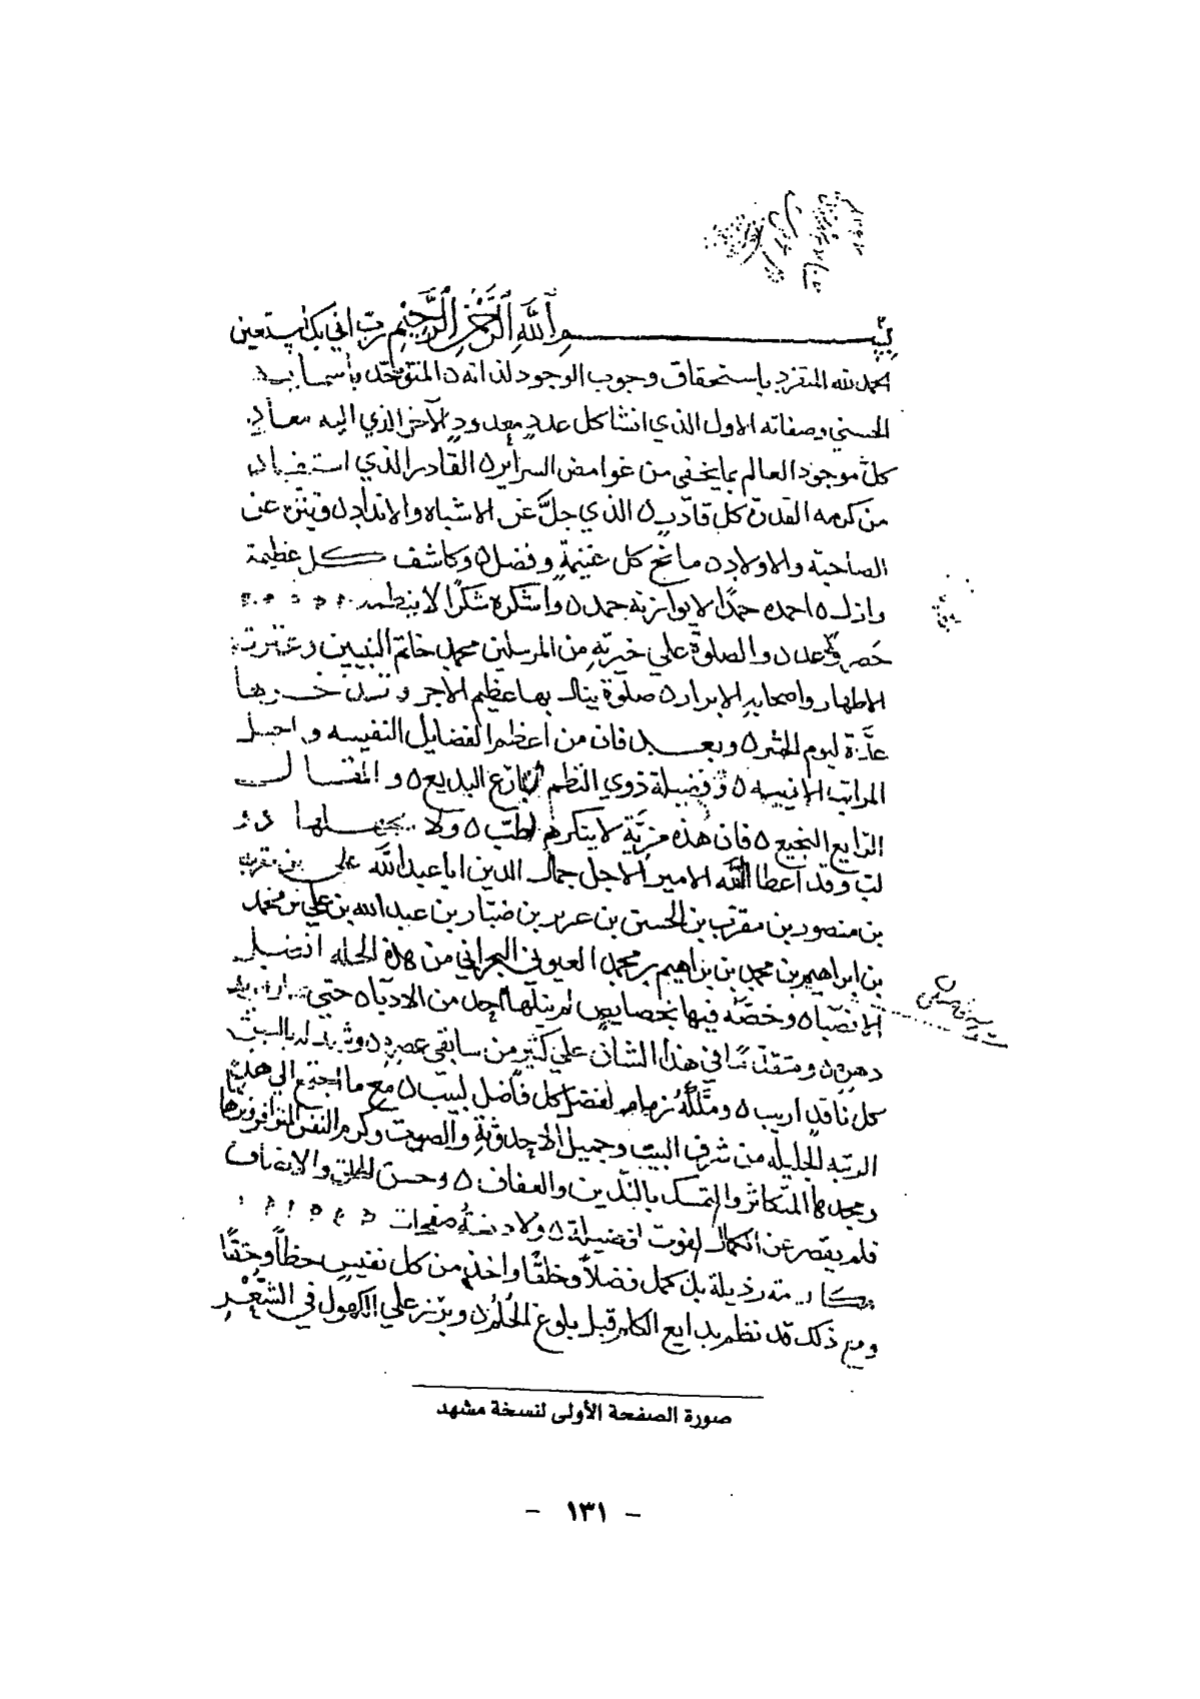 بسم الله الرحمن الرحيم رب اني بك استعين
الحمد لله المتفرد باستحقاق وجوب الوجود لذاته ٥ المتوحد باسمايه
الحسني وصفاته الاول الذي انشا كل عدد معدود الآخر الذي اليه معاد
كل موجود العالم بما يخفى من غوامض السراير ٥ القادر الذي استفاد
من كرمه القدرة كل قادر ٥ الذي جل عن الاشباه والانداد ٥ وتنزه عن
الصاحبة والاولاد ٥ مانح كل غنيمة وفضل ٥ وكاشف كل عظيمة
وازل ٥ احمده حمدًا لا يوازيه حمد ٥ واشكره شكرًا لا ينظمه
حصر وعد ٥ والصلوة علي خيرته من المرسلين محمد خاتم النبيين وعترته
الاطهار واصحابه الابرار ٥ صلوة ينال بها عظيم الاجر و
عدة ليوم الحشر ٥ وبعد فان من اعظم الفضايل النفيسه و
المراتب الانيسه ٥ فضيلة ذوي النظم البارع البديع ٥ و المقال
الرايع النجيع ٥ فان هذه مزية لا ينكرها طب ٥ ولا يجهلها ذو
لب وقد اعطا الله الامير الاجل جمال الدين ابا عبد الله علي بن مقرب
بن منصور بن مقرب بن الحسن بن عرير بن ضبار بن عبد الله بن علي بن محمد
بن ابراهيم بن محمد بن ابراهيم بن محمد العيوني البحراني من هذه الحله افضل
الانصباه وخصه فيها بخصايص لم ينلها احد من الادباه حتي
دهره ٥ ومتقدمًا في هذا الشان علي كثير من سابقي عصره ٥ وشهد له بالسبق
كل ناقد اريب ٥ وملكه زمام الفضل كل فاضل لبيب ٥ مع ما اجتمع الي هذه
الرتبه الجليله من شرف البيت وجميل الاحدوثة والصيت وكرم النفس المتوافر
ومجدها المتكاثر والتمسك بالتدين والعفاف ٥ وحسن الخلق والانصاف
فلم يقصر عن الكمال لفوت فضيلة ٥ ولا دنسته
رذيلة بل كمل فضلاً وخلقًا واخذ من كل نفيس حظاً وحقًا
ومع ذلك قد نظم بدايع الكلام قبل بلوغ الحلم ٥ وبرز علي الكهول في الشعر
صورة الصفحة الأولى لنسخة مشهد
- ١٣١ -